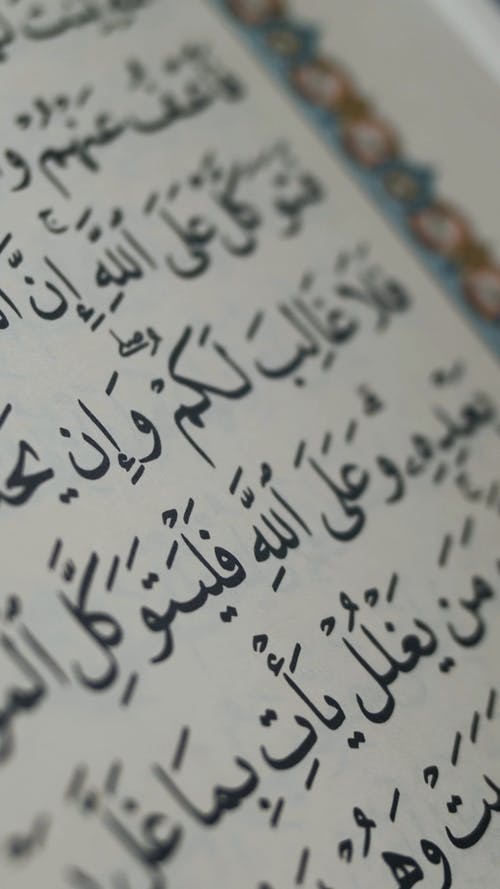 فَٱعْفُ عَنْهُمْ وَ
فَتَوَكَّلْ عَلَى ٱللَّهِ إِنَّ
فَلَا غَالِبَ لَكُمْ وَإِن
بَعْدِهِۦ وَعَلَى ٱللَّهِ فَلْيَتَوَكَّلِ
وَمَن يَغْلُلْ يَأْتِ بِمَا غَلَّ